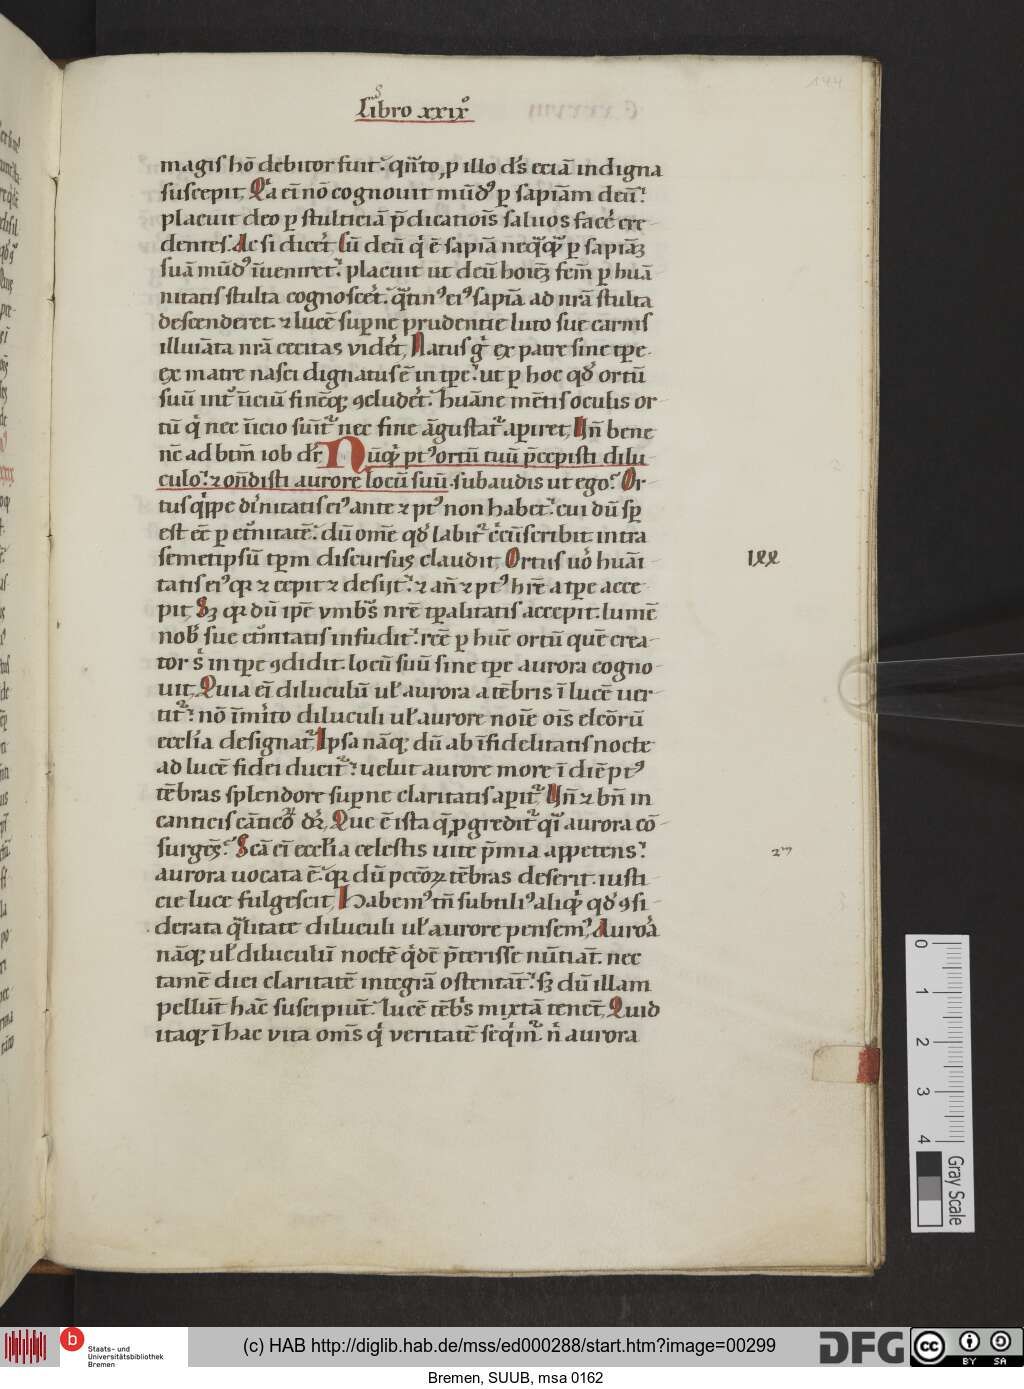 Libro xxixº
magis hō debitor fuit. qñto ꝑ illo ds̄ eciā indigna
suscepit. Qa eī nō cognouit mūdꝰ ꝑ sapiām deū.
placuit deo ꝑ stulticiā p̄dicatiois̄ saluos facē cre
dentes. Ac si dicēt. Cū deū qͥ ē sapiā neqͣqͣꝫ ꝑ sapiāꝫ
suā mūdꝰ īueniret. placuit ut deū hoiēꝫ fcm̄ ꝑ huā
nitatis stulta cognoscēt. qͣtinꝰ eiꝰ sapiā ad nrā stulta
descenderet. ⁊ lucē suꝑne prudentie luto sue carnis
illuiāta nrā cecitas vidēt. Natus gͥ ex patre sine tꝑe
ex matre nasci dignatus ē in tꝑe. ut ꝑ hoc qđ ortū
suū int̄ ūiciū finēqꝫ ꝯcludēt. huāne mētis oculis or
tū qͥ nec ūicio sum̄it nec fine āgustat̄ aꝑiret. Un̄ bene
nc̄ ad btm̄ iob dr̄. Nūqͥd pt̕ ortū tuū p̄cepisti dilu
culo. ⁊ on̄disti aurore locū suū. subaudis ut ego. Or
tus qͥppe diͥnitatis eiꝰ ante ⁊ pt̕ non habet. cui dū sꝑ
est ec̄ ꝑ et̄nitatē. dū omē qđ labit̄ c̄cūscribit. intra
semetip̄sū tꝑm discursus claudit. Ortus uº huāi
tatis eiꝰ qꝛ ⁊ cepit ⁊ desijt. ⁊ an̄ ⁊ pt̕ hr̄e a tꝑe acce
pit. Sꝫ qꝛ dū ip̄e vmbs̄ nr̄e tꝑalitatis accepit. lumē
nob̄ sue et̄nitatis infudit. rc̄e ꝑ huc̄ ortū quē crea
tor sͥ in tꝑe ꝯdidit. locū suū sine tꝑe aurora cogno
uit. Quia eī diluculū ul̕ aurora a tēbris ī lucē uer
tit̄. nō īmito diluculi ul̕ aurore noīe ois̄ elcōrū
eccliā designat̄. Ipsa nāqꝫ dū ab īfidelitatis nocte
ad lucē fidei ducit̄. uelut aurore more ī diē pt̕
tēbras splendore suꝑne claritatis aꝑit̄. Un̄ ⁊ bn̄ in
canticis cāticoꝝ dr̄. Que ē ista q̄ ꝓgredit̄ qͣi aurora cō
surgēs. Scā eī ecclīa celestis uite p̄mia appetens.
aurora uocata ē. qꝛ dū pccōꝝ tēbras deserit. iusti
cie luce fulgescit. Habemꝰ tn̄ subtiliꝰ aliqͥd qđ ꝯsi
derata qͣlitate diluculi ul̕ aurore pensemꝰ. Auroͣa
nāqꝫ ul̕ diluculū noctē qͥdē p̄terisse nūtiāt. nec
tamē diei claritatē integrā ostentāt. sꝫ dū illam
pellūt hāc suscipiūt. lucē tēbͥs mixtā tenēt. Quid
itaqꝫ ī hac vita oms̄ qͥ veritatē seqͥm̄. nͥ aurora
lxx
2ᵐ
144
0 1 2 3 4
Gray Scale
b
Staats- und
Universitätsbibliothek
Bremen
(c) HAB http://diglib.hab.de/mss/ed000288/start.htm?image=00299
DFG
cc BY SA
Bremen, SUUB, msa 0162